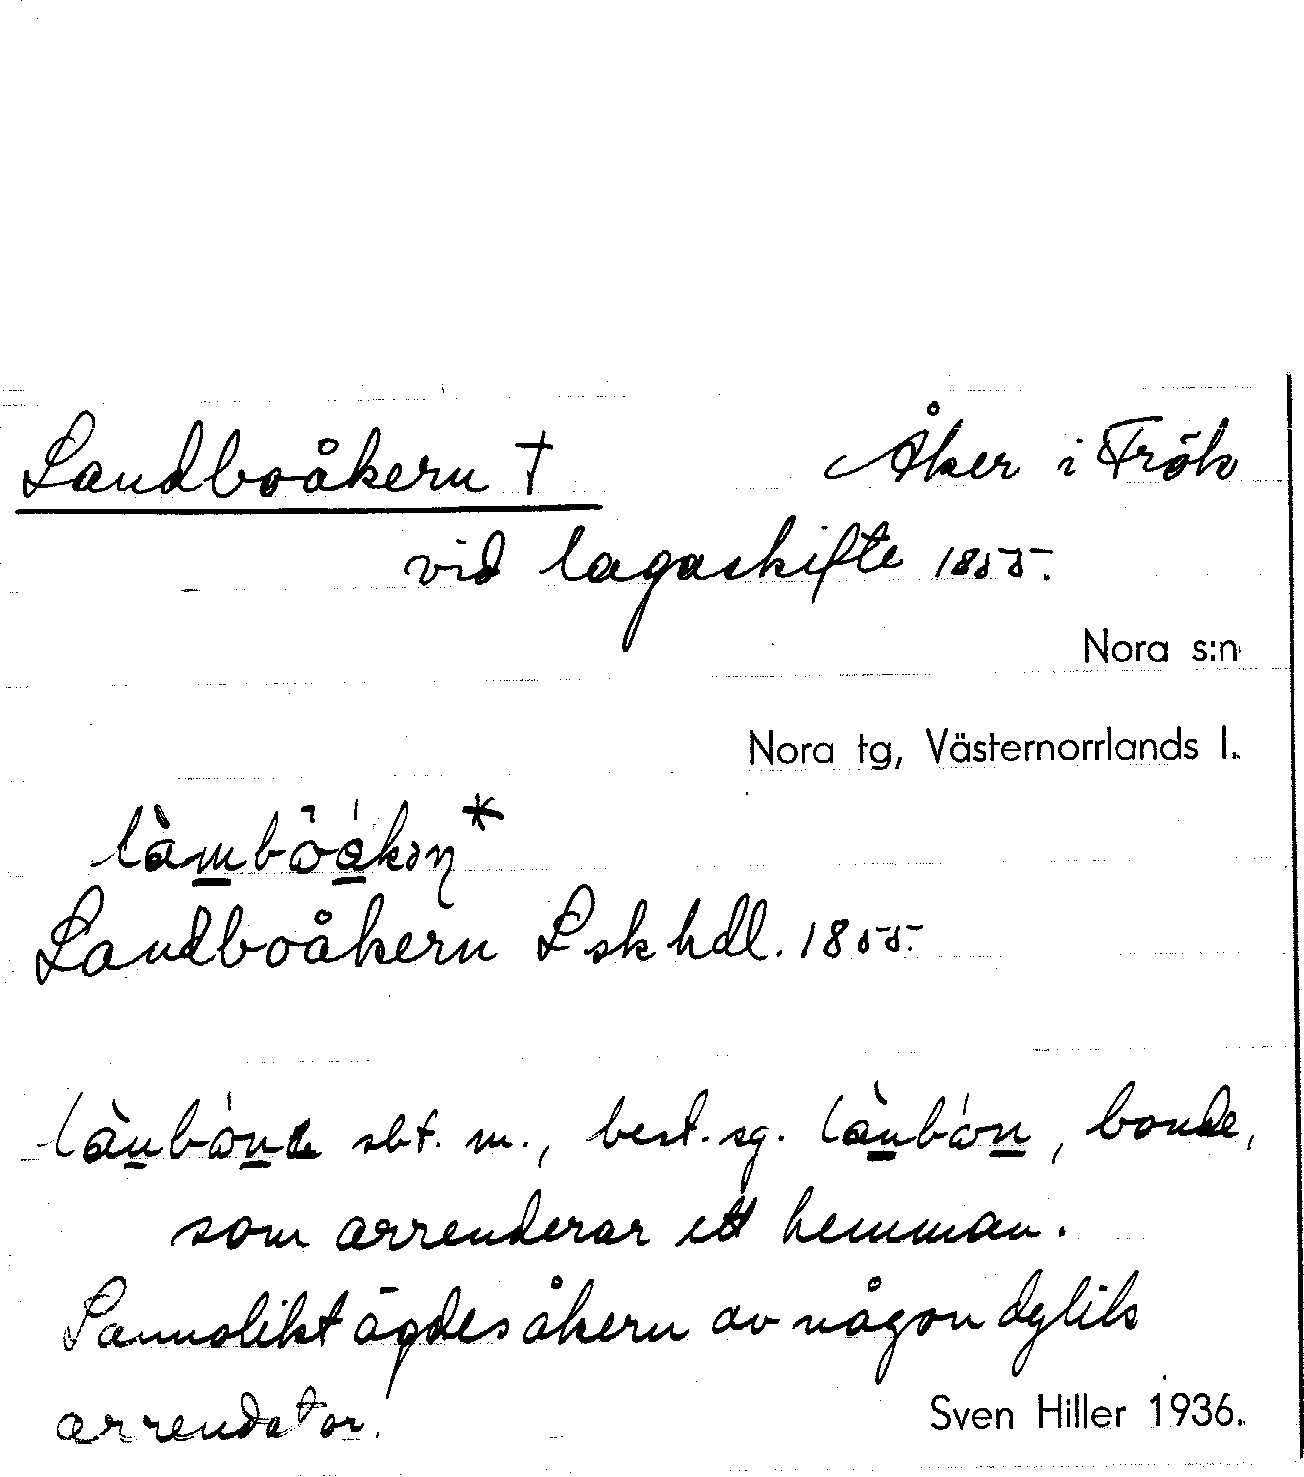 Landboåkern †
Åker i Frök
vid lagaskifte 1855.
Nora s:n
Nora tg, Västernorrlands l.
Landboåkern Lskhdl. 1855.
sbt. m., best. sg. , bonde,
som arrenderar ett hemman.
Sannolikt ägdes åkern av någon dylik
arrendator.
Sven Hiller 1936.